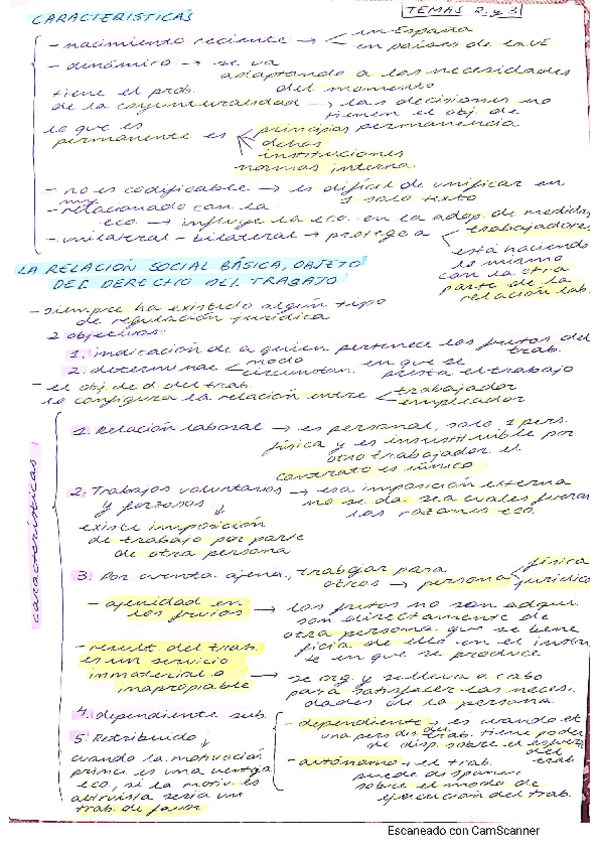 CARACTERISTICAS
TEMAS 2 y 3
- nacimiento reciente → en España
en países de la UE
- dinámico → se va
adaptando a las necesidades
del momento
tiene el prob.
de la coyunturalidad → las decisiones no
tienen el obj. de
permanencia
lo que es
permanente es principios
dchos
instituciones
normas interna.
- no es codificable → es difícil de unificar en
1 solo texto
- muy relacionado con la
eco. → influye la eco. en la adop. de medidas
- unilateral - bilateral → protege a trabajadores
está haciendo
lo mismo
con la otra
parte de la
relación lab.
LA RELACIÓN SOCIAL BÁSICA, OBJETO
DEL DERECHO DEL TRABAJO
- siempre ha existido algún tipo
de regulación jurídica
2 objetivos:
1. indicación de a quien pertenece los frutos del
trab.
2. determinar modo
circunstan. en que se
presta el trabajo
- el obj. de d. del trab.
lo configura la relación entre trabajador
empleador
características
1. Relación laboral → es personal, solo 1 pers.
física y es insustituible por
otro trabajador, el
contrato es único
2. Trabajos voluntarios → esa imposición externa
y forzosos no se da sea cuales fueran
las razones eco.
existe imposición
de trabajo por parte
de otra persona
3. Por cuenta ajena, trabajar para
otros → persona física
jurídica
- ajenidad en
los frutos → los frutos no son adqui.
son directamente de
otra persona que se bene
ficia de ello en el instan
te en que se produce
- result. del trab.
es un servicio
inmaterial o
inapropiable → se org. y se lleva a cabo
para satisfacer las neces.
dades de la persona
4. dependiente sub.
- dependiente → es cuando el
una pers. dis. del trab. tiene poder
de disp. sobre el esfuerzo
del trab
- autónomo → el trab.
puede dispon
sobre el modo de
ejecución del trab.
5. Retribuido
cuando la motivación
princi. es una ventaja
eco, si la motiv. es
altruista sería un
trab. de favor
Escaneado con CamScanner